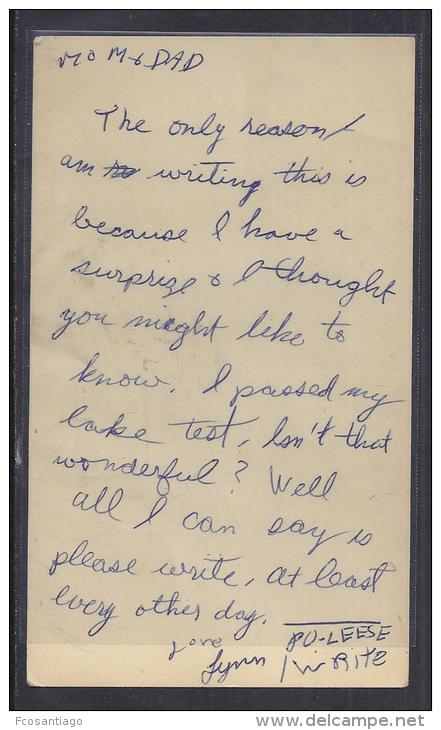 MOM & DAD
The only reason I
am writing this is
because I have a
surprize & I thought
you might like to
know. I passed my
lake test, Isn't that
wonderful? Well
all I can say is
please write, at least
every other day.
Love
Lynn
PU-LEESE
WRITE
Fcosantiago
delcampe.net